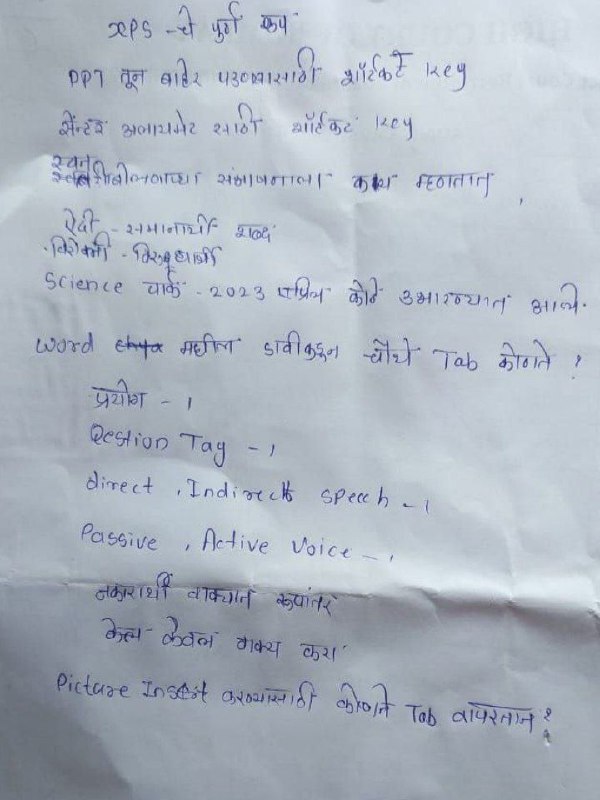 XPS - चे पुर्ण रूप
PPT तून बाहेर पडण्यासाठी शॉर्टकर्ट key
सेंन्टर अलायमेंट साठी शॉर्टकट key
स्वत
बोलणाच्या संभाषनाला काय म्हणतात,
ऐदी - समानार्थी शब्द
विरोक्ती - विरुद्धार्थी
Science पार्क - 2023 एप्रिल कोठे उभारण्यात आले.
word मधील डावीकडून चौथे Tab कोणते ?
प्रयोग - 1
Qestion Tag - 1
direct , Indirect speech - 1
Passive , Active Voice - 1
नकारार्थी वाक्यात रूपांतर
केवल वाक्य करा
Picture Insert करण्यासाठी कोणते Tab वापरतात ?